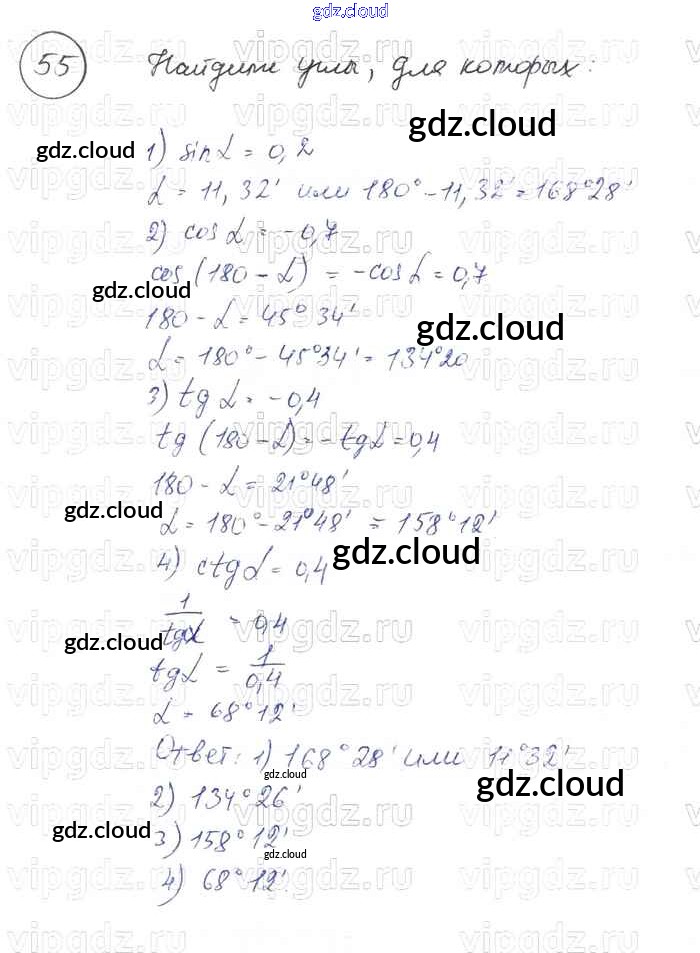 gdz.cloud
55 Найдите углы, для которых:
gdz.cloud
gdz.cloud
1) sin α = 0,2
α = 11, 32' или 180° - 11, 32' = 168°28'
2) cos α = -0,7
cos (180 - α) = -cos α = 0,7
gdz.cloud
180 - α = 45°34'
gdz.cloud
α = 180° - 45°34' = 134°20
3) tg α = -0,4
tg (180 - α) = -tg α = 0,4
180 - α = 21°48'
gdz.cloud
α = 180° - 21°48' = 158°12'
gdz.cloud
4) ctg α = 0,4
1/tg α = 0,4
gdz.cloud
tg α = 1/0,4
α = 68°12'
Ответ: 1) 168°28' или 11°32'
gdz.cloud
gdz.cloud
2) 134°26'
gdz.cloud
3) 158°12'
gdz.cloud
4) 68°12'.